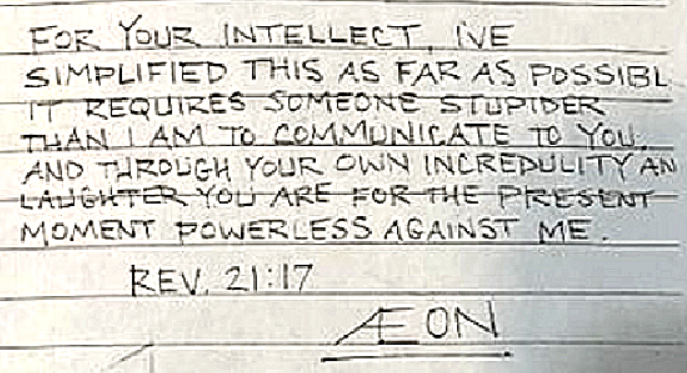 FOR YOUR INTELLECT, I'VE
SIMPLIFIED THIS AS FAR AS POSSIBL
IT REQUIRES SOMEONE STUPIDER
THAN I AM TO COMMUNICATE TO YOU.
AND THROUGH YOUR OWN INCREDULITY AN
LAUGHTER YOU ARE FOR THE PRESENT
MOMENT POWERLESS AGAINST ME.
REV. 21:17
ÆON